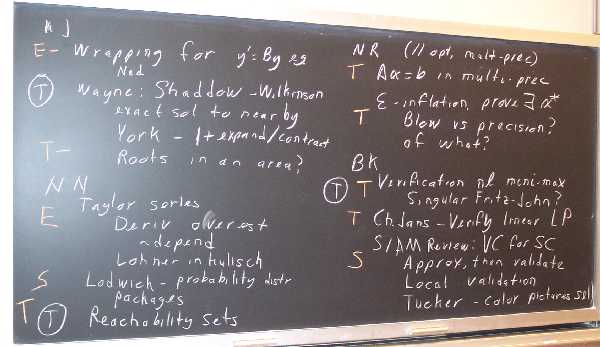 NJ
E- Wrapping for y'=By eg
Ned
T Wayne: Shaddow - Wilkinson
exact sol to near by
York - 1+expand/contract
T- Roots in an area?
NN
E Taylor series
Deriv overest
ndepend
Lohner in hulisch
S Lodwich - probability distr
packages
T T Reachability sets
NR (// opt, mult-prec)
T Ax=b in multi-prec
T ε-inflation, prove ∃ x*
Blow vs precision?
of what?
BK
T T Verification nl mini-max
Singular Fritz-John?
T Ch. Jans - Verify linear LP
S SIAM Review: VC for SC
Approx, then validate
Local validation
Tucker - color pictures sell